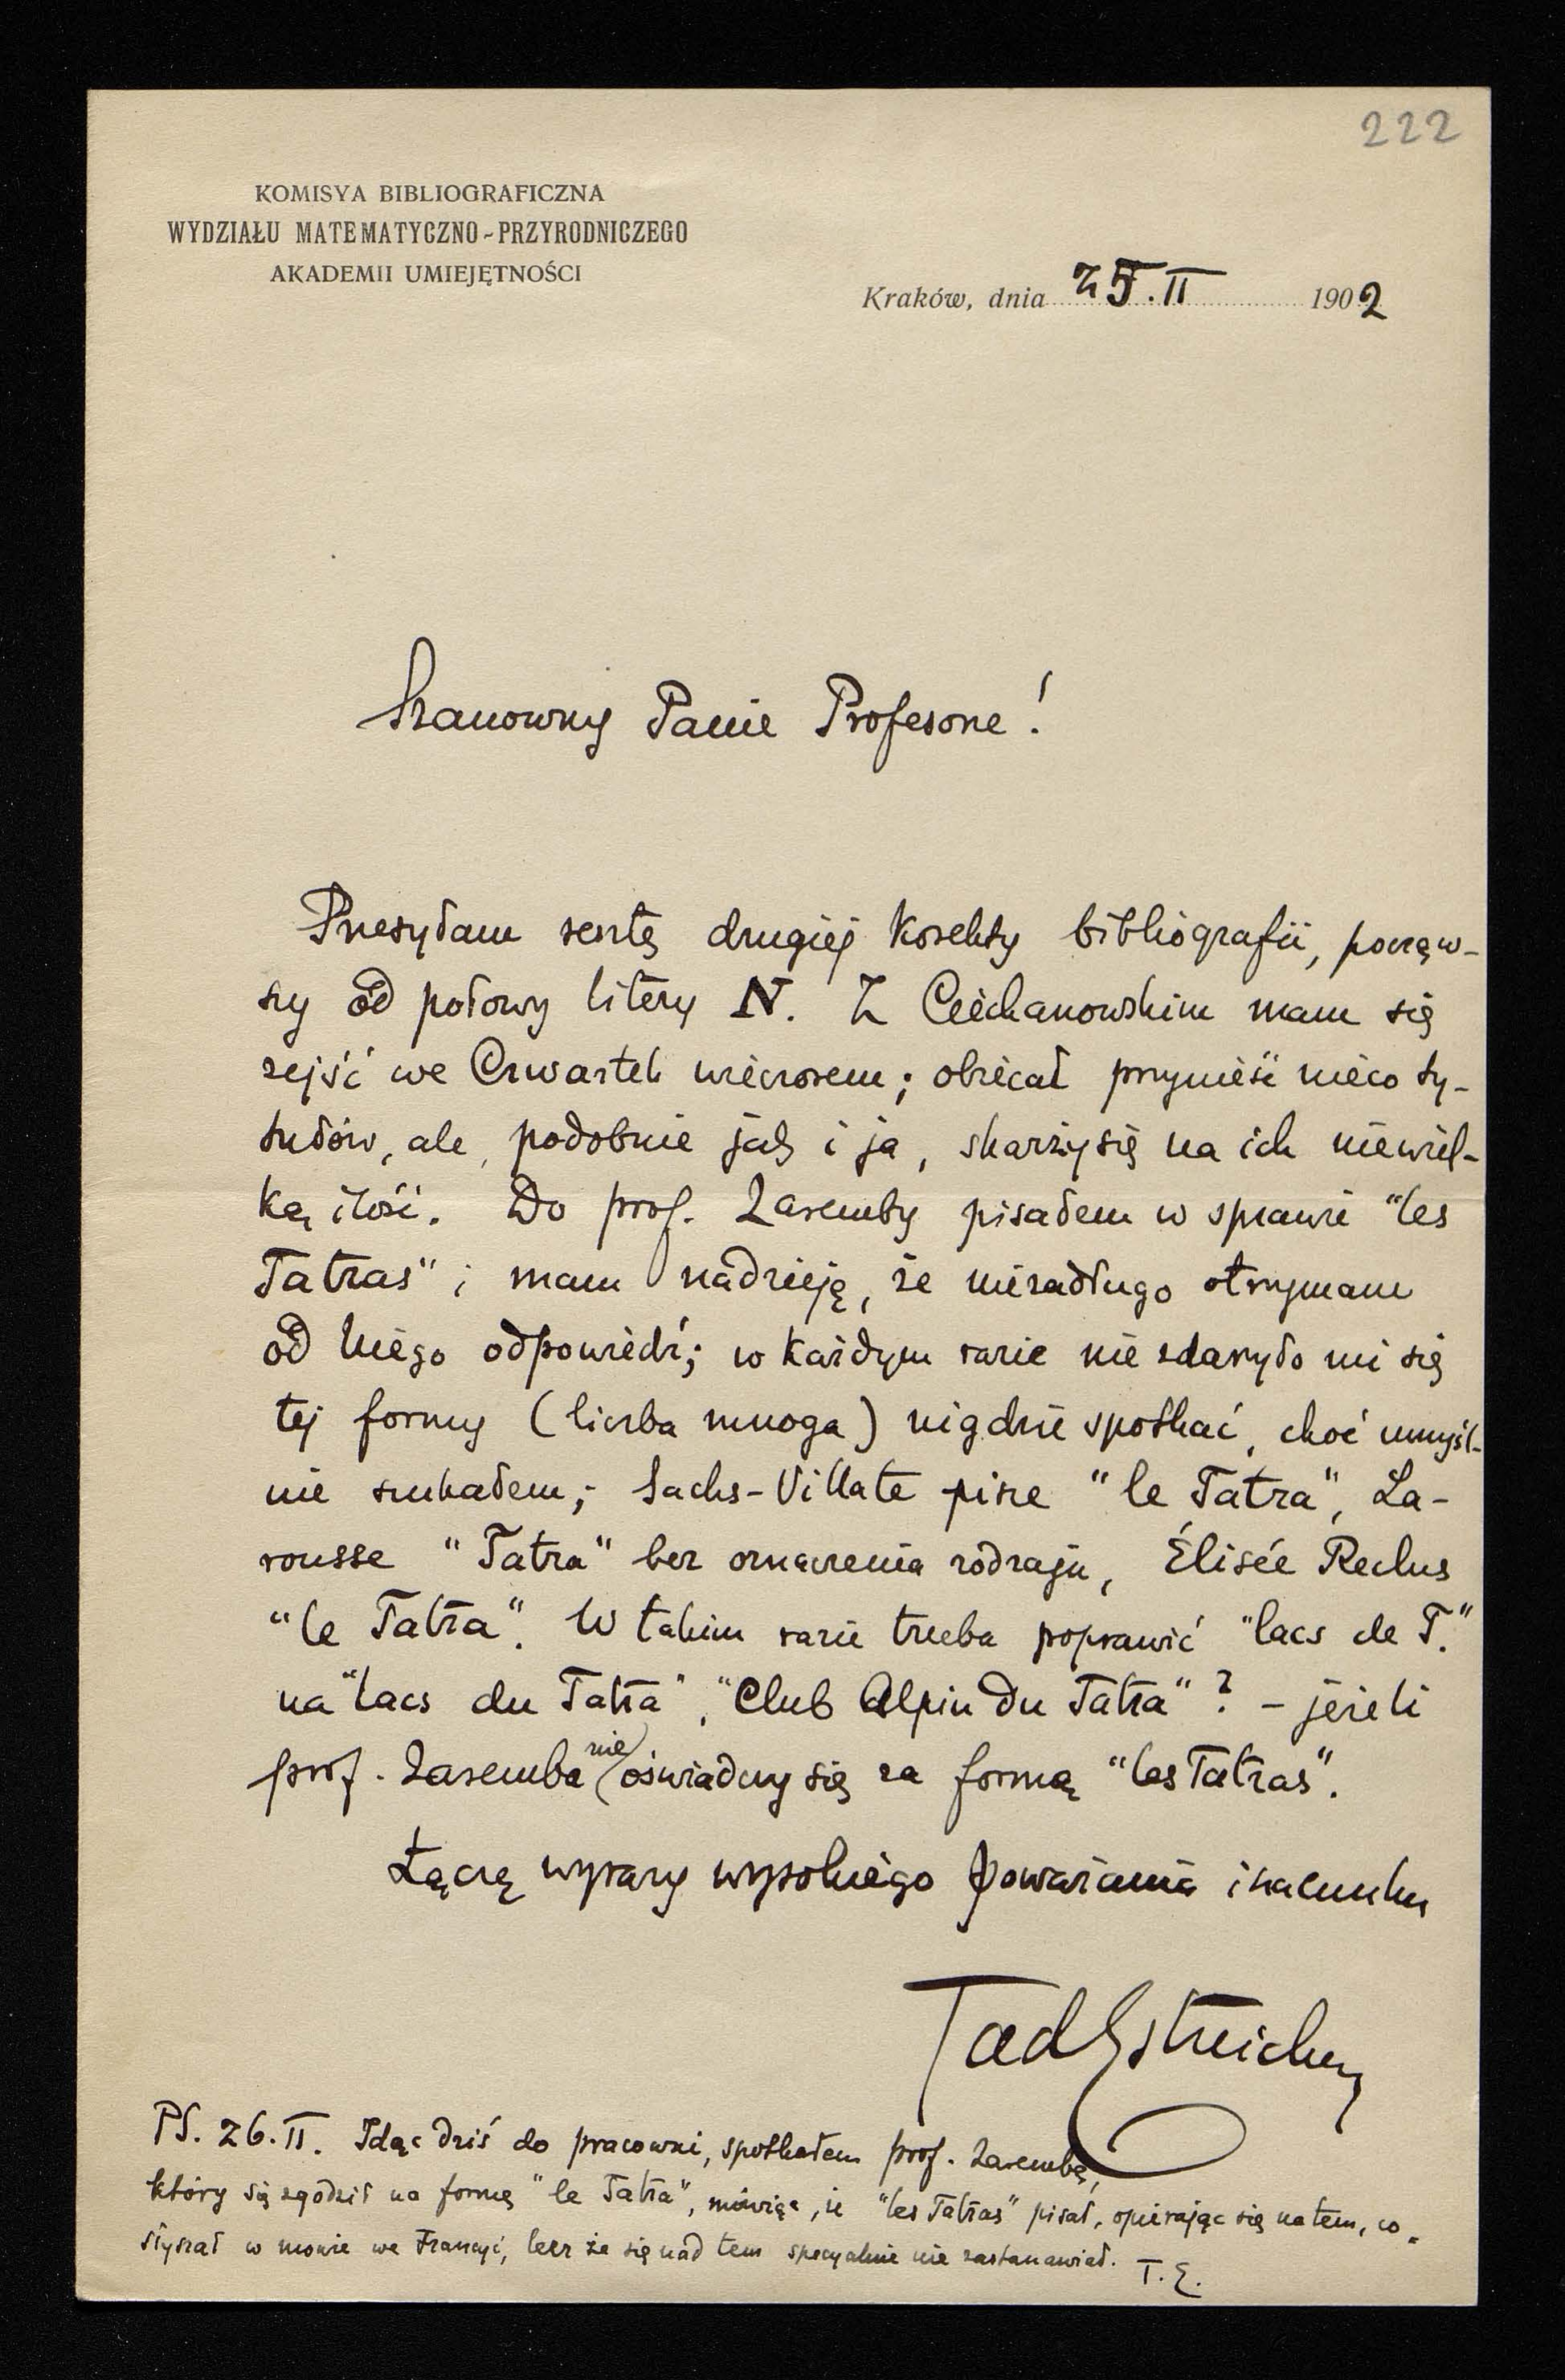 222
KOMISYA BIBLIOGRAFICZNA
WYDZIAŁU MATEMATYCZNO-PRZYRODNICZEGO
AKADEMII UMIEJĘTNOŚCI
Kraków, dnia 25.II 1902
Szanowny Panie Profesorze!
Przesyłam resztę drugiej korekty bibliografii, począw-
szy od połowy litery N. Z Ciechanowskim mam się
zejść we Czwartek wieczorem; obiecał przynieść nieco ty-
tułów, ale, podobnie jak i ja, skarży się na ich niewiel-
ką ilość. Do prof. Zaremby pisałem w sprawie "les
Tatras" i mam nadzieję, że niezadługo otrzymam
od Niego odpowiedź; w każdym razie nie zdarzyło mi się
tej formy (liczba mnoga) nigdzie spotkać, choć umyśl-
nie szukałem; Sachs-Villate pisze "le Tatra", La-
rousse "Tatra" bez oznaczenia rodzaju, Élisée Reclus
"le Tatra". W takim razie trzeba poprawić "lacs de T."
na "lacs du Tatra", "Club Alpin du Tatra"? – jeżeli
prof. Zaremba nie oświadczy się za formą "les Tatras".
Łączę wyrazy wysokiego poważania i szacunku
Tad Estreicher
PS. 26.II. Idąc dziś do pracowni, spotkałem prof. Zarembę,
który się zgodził na formę "le Tatra", mówiąc, że "les Tatras" pisał, opierając się na tem, co
słyszał w mowie we Francyi, lecz że się nad tem specyalnie nie zastanawiał. T.E.